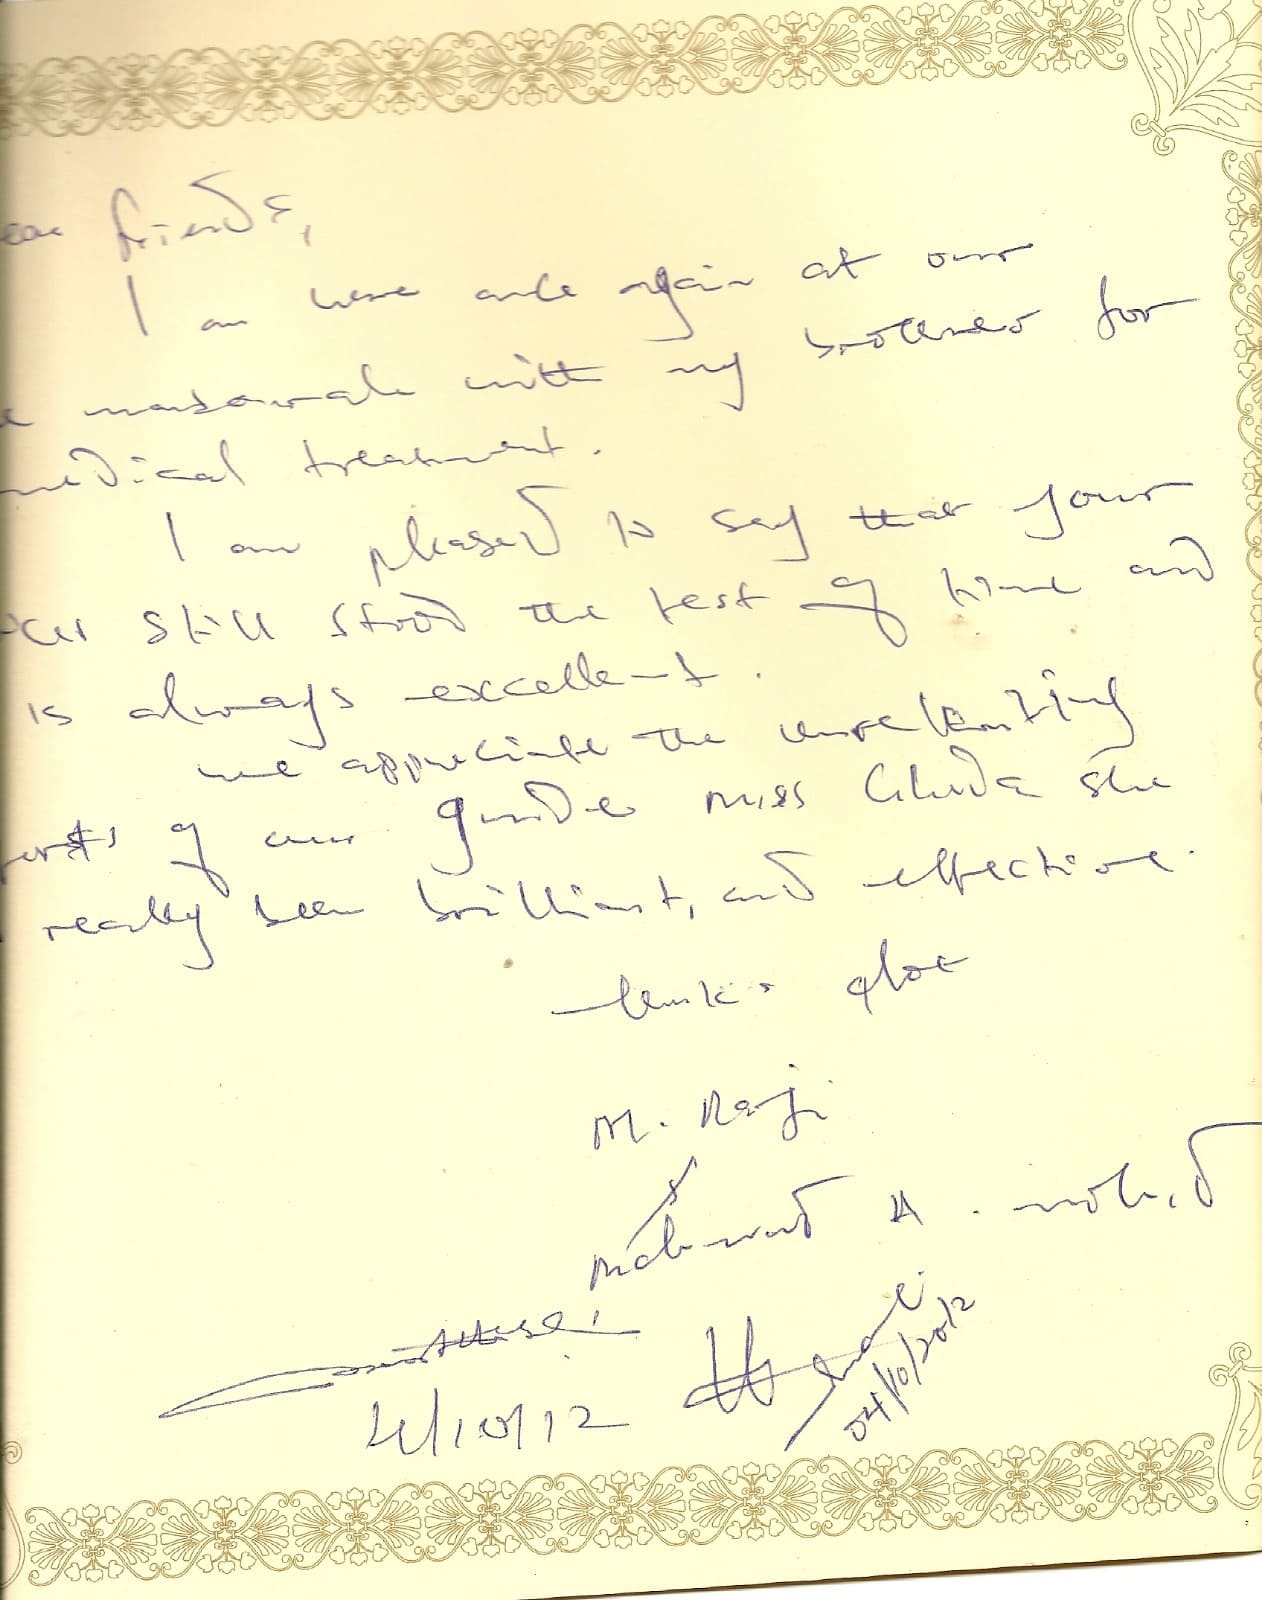 ear friends,
I am here once again at our
with my brothers for
medical treatment.
I am pleased to say that your
still stood the test of time and
is always excellent.
we appreciate the unrelenting
of our guide miss Ghida she
really been brilliant, and effective.
thanks alot
M.
Mahmud A.
4/10/12
04/10/2012